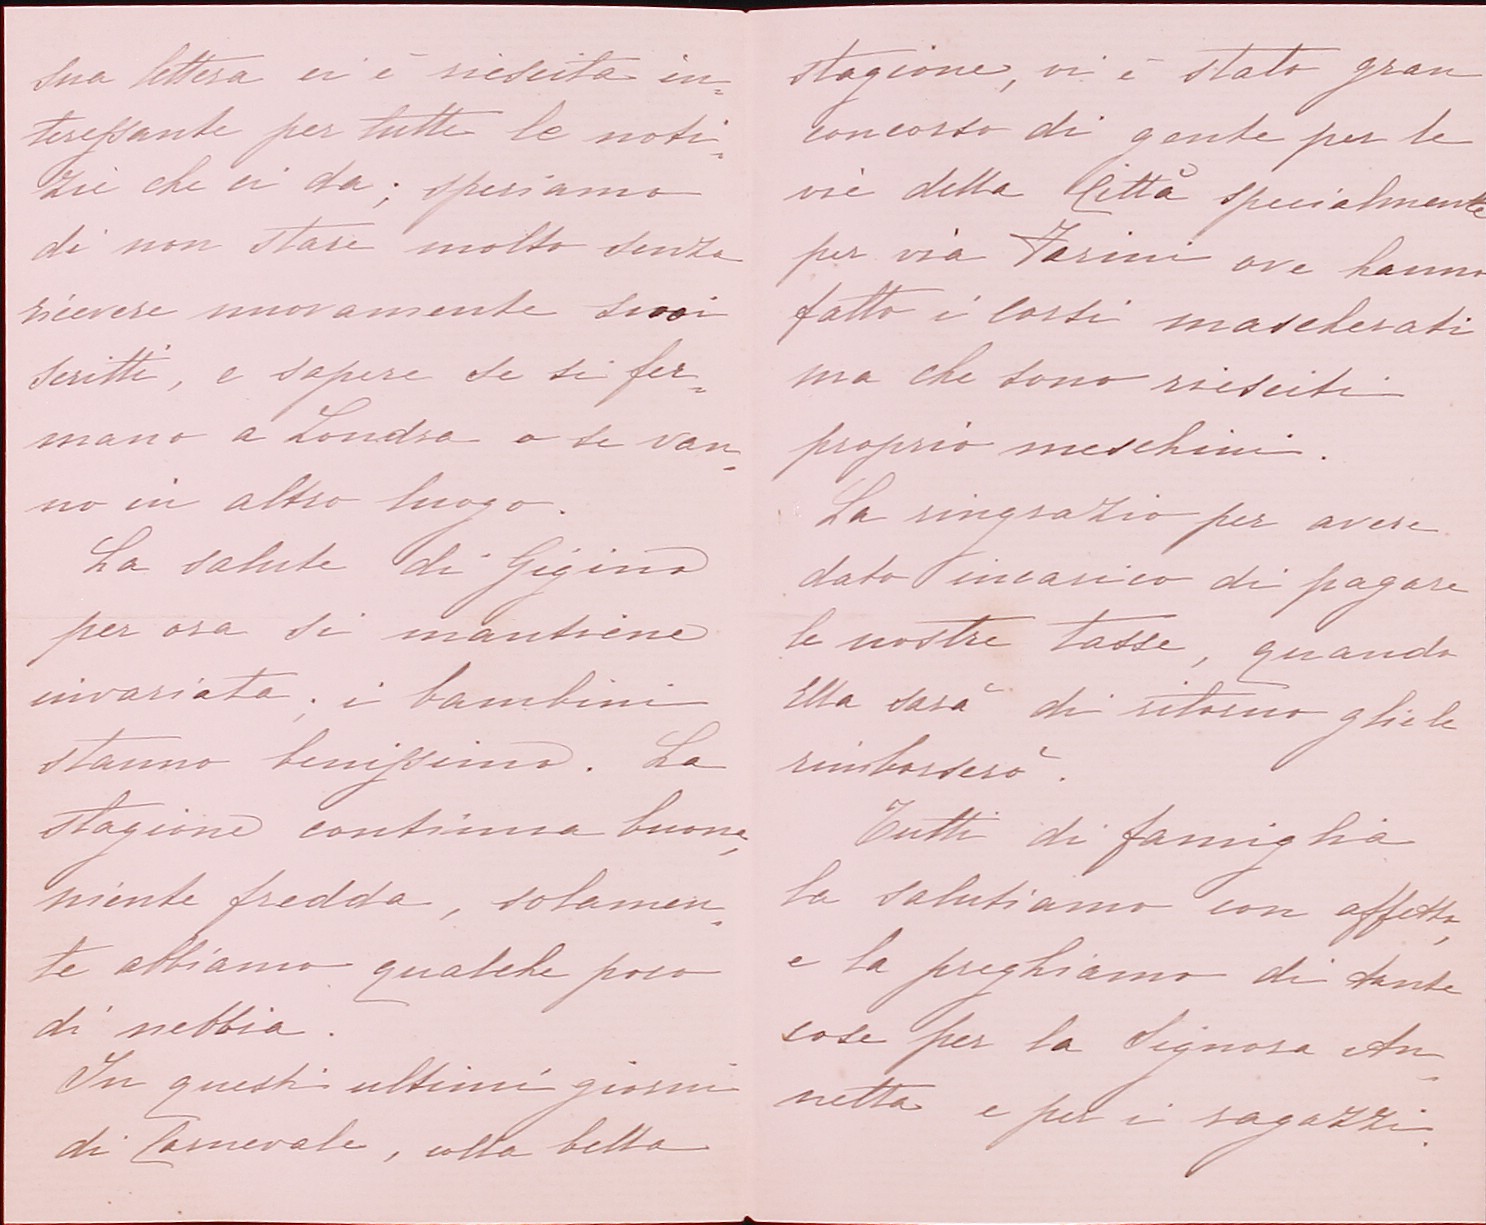 sua lettera ci è riescita in=
teressante per tutte le noti=
zie che ci da; speriamo
di non stare molto senza
ricevere nuovamente suoi
scritti, e sapere se si fer=
mano a Londra o se van=
no in altro luogo.
La salute di Gigino
per ora si mantiene
invariata; i bambini
stanno benissimo. La
stagione continua buona,
niente fredda, solamen=
te abbiamo qualche poco
di nebbia.
In questi ultimi giorni
di Carnevale, colla bella
stagione, vi è stato gran
concorso di gente per le
vie della Città specialmente
per via Farini ove hanno
fatto i corsi mascherati
ma che sono riesciti
proprio meschini.
La ringrazio per avere
dato incarico di pagare
le nostre tasse, quando
Ella sarà di ritorno gliele
rimborserò.
Tutti di famiglia
la salutiamo con affetto,
e la preghiamo di tante
cose per la Signora An=
netta e per i ragazzi.